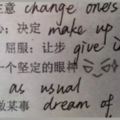 意 change one's
心：决定 make up
屈服：让步 give i
一个坚定的眼神
as usual
做某事 dream of